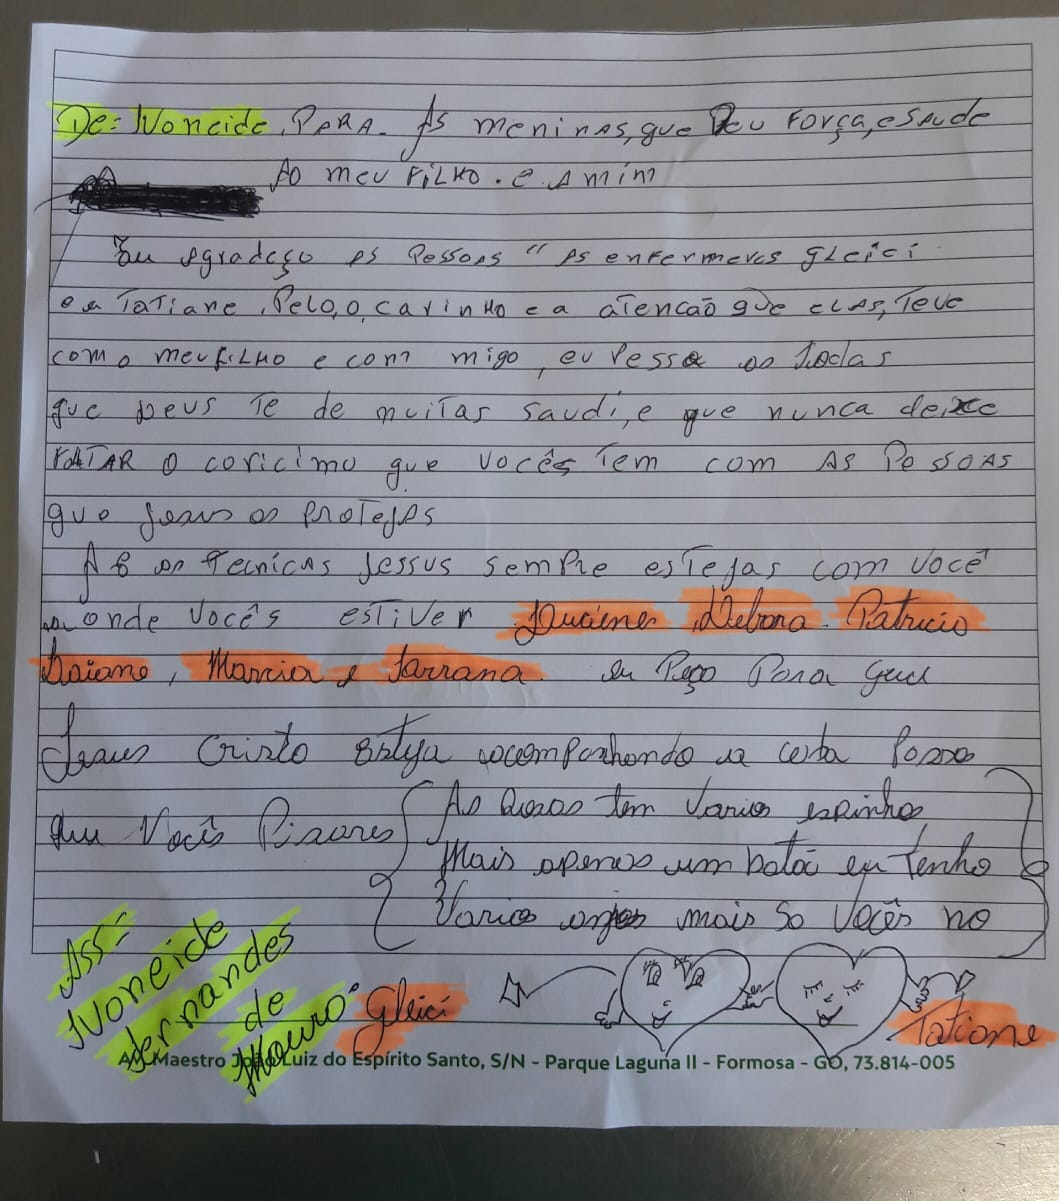 De= Ivoneide, PARA. As meninas, que Deu Força, e saude
Ao meu FiLHO. e. a mim
Eu agradeço as Pessoas " as enfermeras gleici
e a Tatiane, Pelo, o, carinHo e a atencão que elas, Teve
com o meu fiLHO e com migo, eu Pesso as Todas
que Deus Te de muitas saudi, e que nunca deixe
FALTAR O coricimo que vocês Tem com AS PessoAS
que Jesus os ProTejas
as Tecnicas Jessus semPre esTejas com você
onde vocês esTiver Luciene Debora. Patricio
Daiane, Marcia e Jarrana. eu Peço Para que
Jesus Cristo esteja acompanhando a cada Passo
que Vocês Pisares
As Rosas tem Varios espinhos
Mais apenas um botão eu Tenho
Varios anjos mais so Vocês no
Ass=
Ivoneide
Fernandes
de
Mouro.
Gleici
Tatiane
Av. Maestro João Luiz do Espírito Santo, S/N - Parque Laguna II - Formosa - GO, 73.814-005